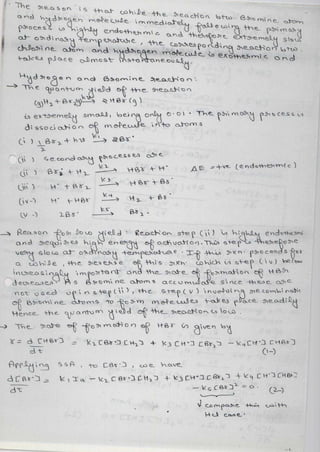 → The reason is that while the reaction btw Bromine atom
and hydrogen molecule immediately following the primary
process is highly endothermic and therefore extremely slow
at ordinary temperature, the corresponding reaction btw
chlorine atom and hydrogen molecule is exothermic and
takes place almost instantaneously.
Hydrogen and Bromine reaction:
→ The quantum yield of the reaction
(g)H2 + Br2(g) → 2HBr(g)
is extremely small, being only 0.01. The primary process is
dissociation of molecule into atoms
(i) 1/2 Br2 + hν k1→ 2Br·
(ii) Secondary processes are
(ii) Br· + H2 k2→ HBr + H· ΔE = +ve (endothermic)
(iii) H· + Br2 k3→ HBr + Br·
(iv-) H· + HBr k4→ H2 + Br·
(v-) 2Br· k5→ Br2.
→ Reason for low yield = Reaction step (ii) is highly endothermic
and requires high energy of activation. This step is therefore
very slow at ordinary temperature. If this rxn proceeds for
a while, the reverse of this rxn which is step (iv) becom
increasingly important and the rate of formation of HBr
decreases. As Bromine atoms accumulate since these are
not used up in step (ii), the step (v) involving recombination
of Bromine atoms to form molecules takes place readily
Hence the quantum yield of the reaction is low.
→ The rate of formation of HBr is given by
r = d[HBr]/dt = k2[Br·][H2] + k3[H·][Br2] - k4[H·][HBr]
(1-)
Applying SSA, to [Br·], we have
d[Br·]/dt = k1Ia - k2[Br·][H2] + k3[H·][Br2] + k4[H·][HBr]
- k5[Br·]² = 0. (2-)
compare this with
Hcl case.